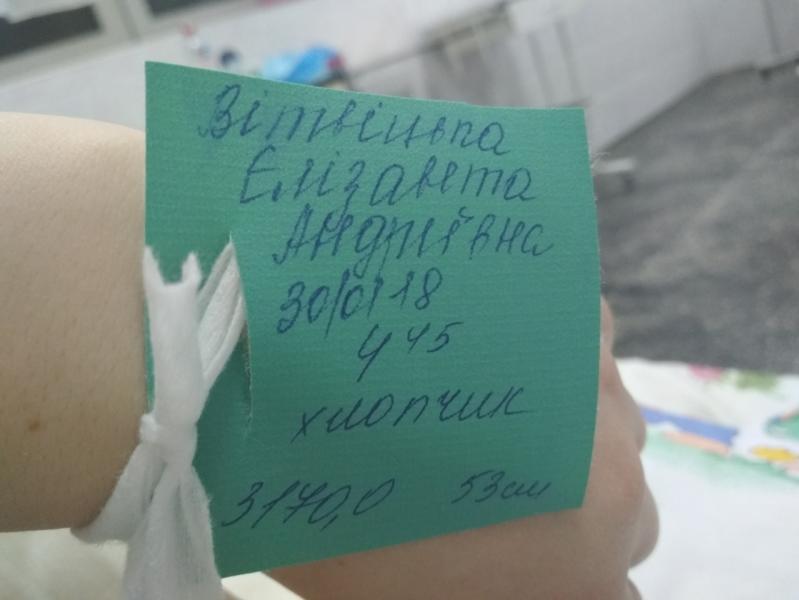 Вітвіцька
Елізавета
Андріївна
30/01 18
4 45
хлопчик
3170,0 53см